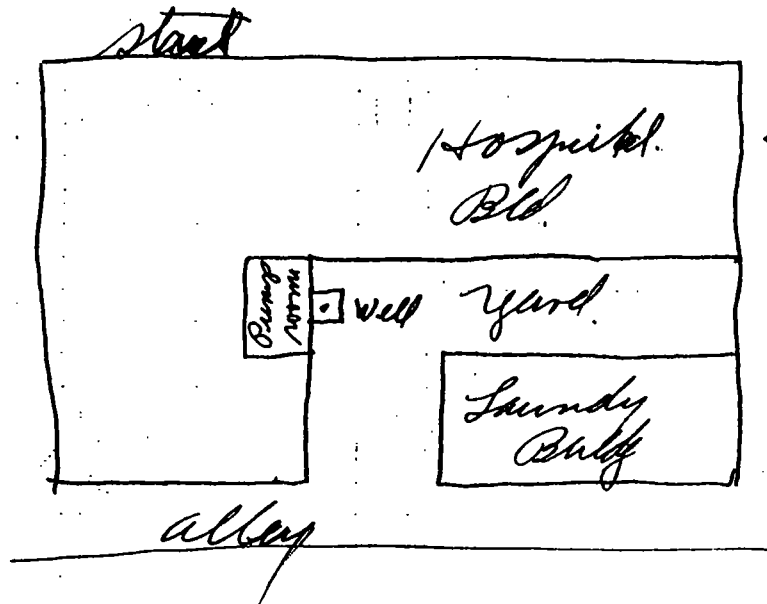 Hospital
Bld.
Pump
room
Well
Yard.
Laundy
Buldg
alley